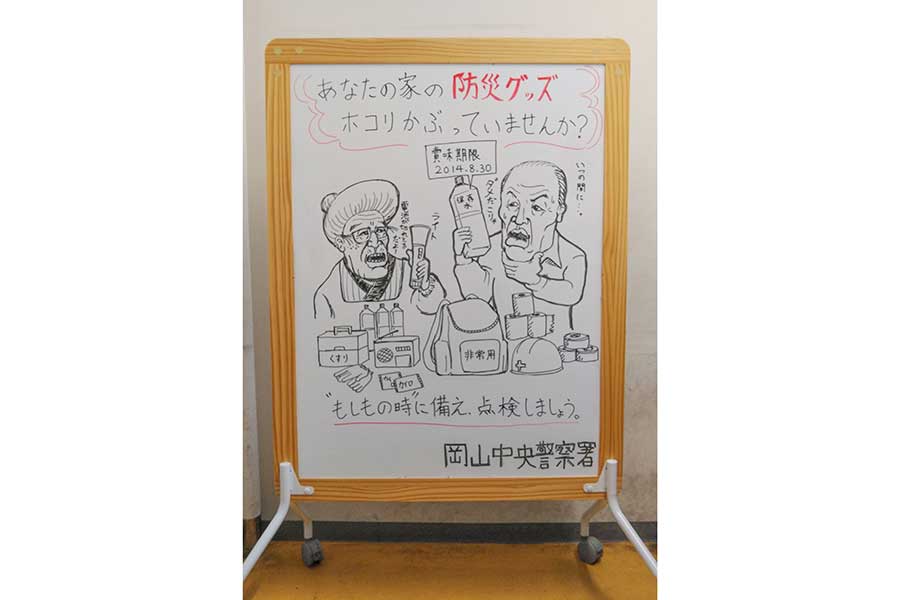 あなたの家の防災グッズ
ホコリかぶっていませんか?
賞味期限
2014.8.30
いつの間に…。
ダメだこりゃ
保存水
ライト
くすり
非常用
カイロ
"もしもの時"に備え、点検しましょう。
岡山中央警察署